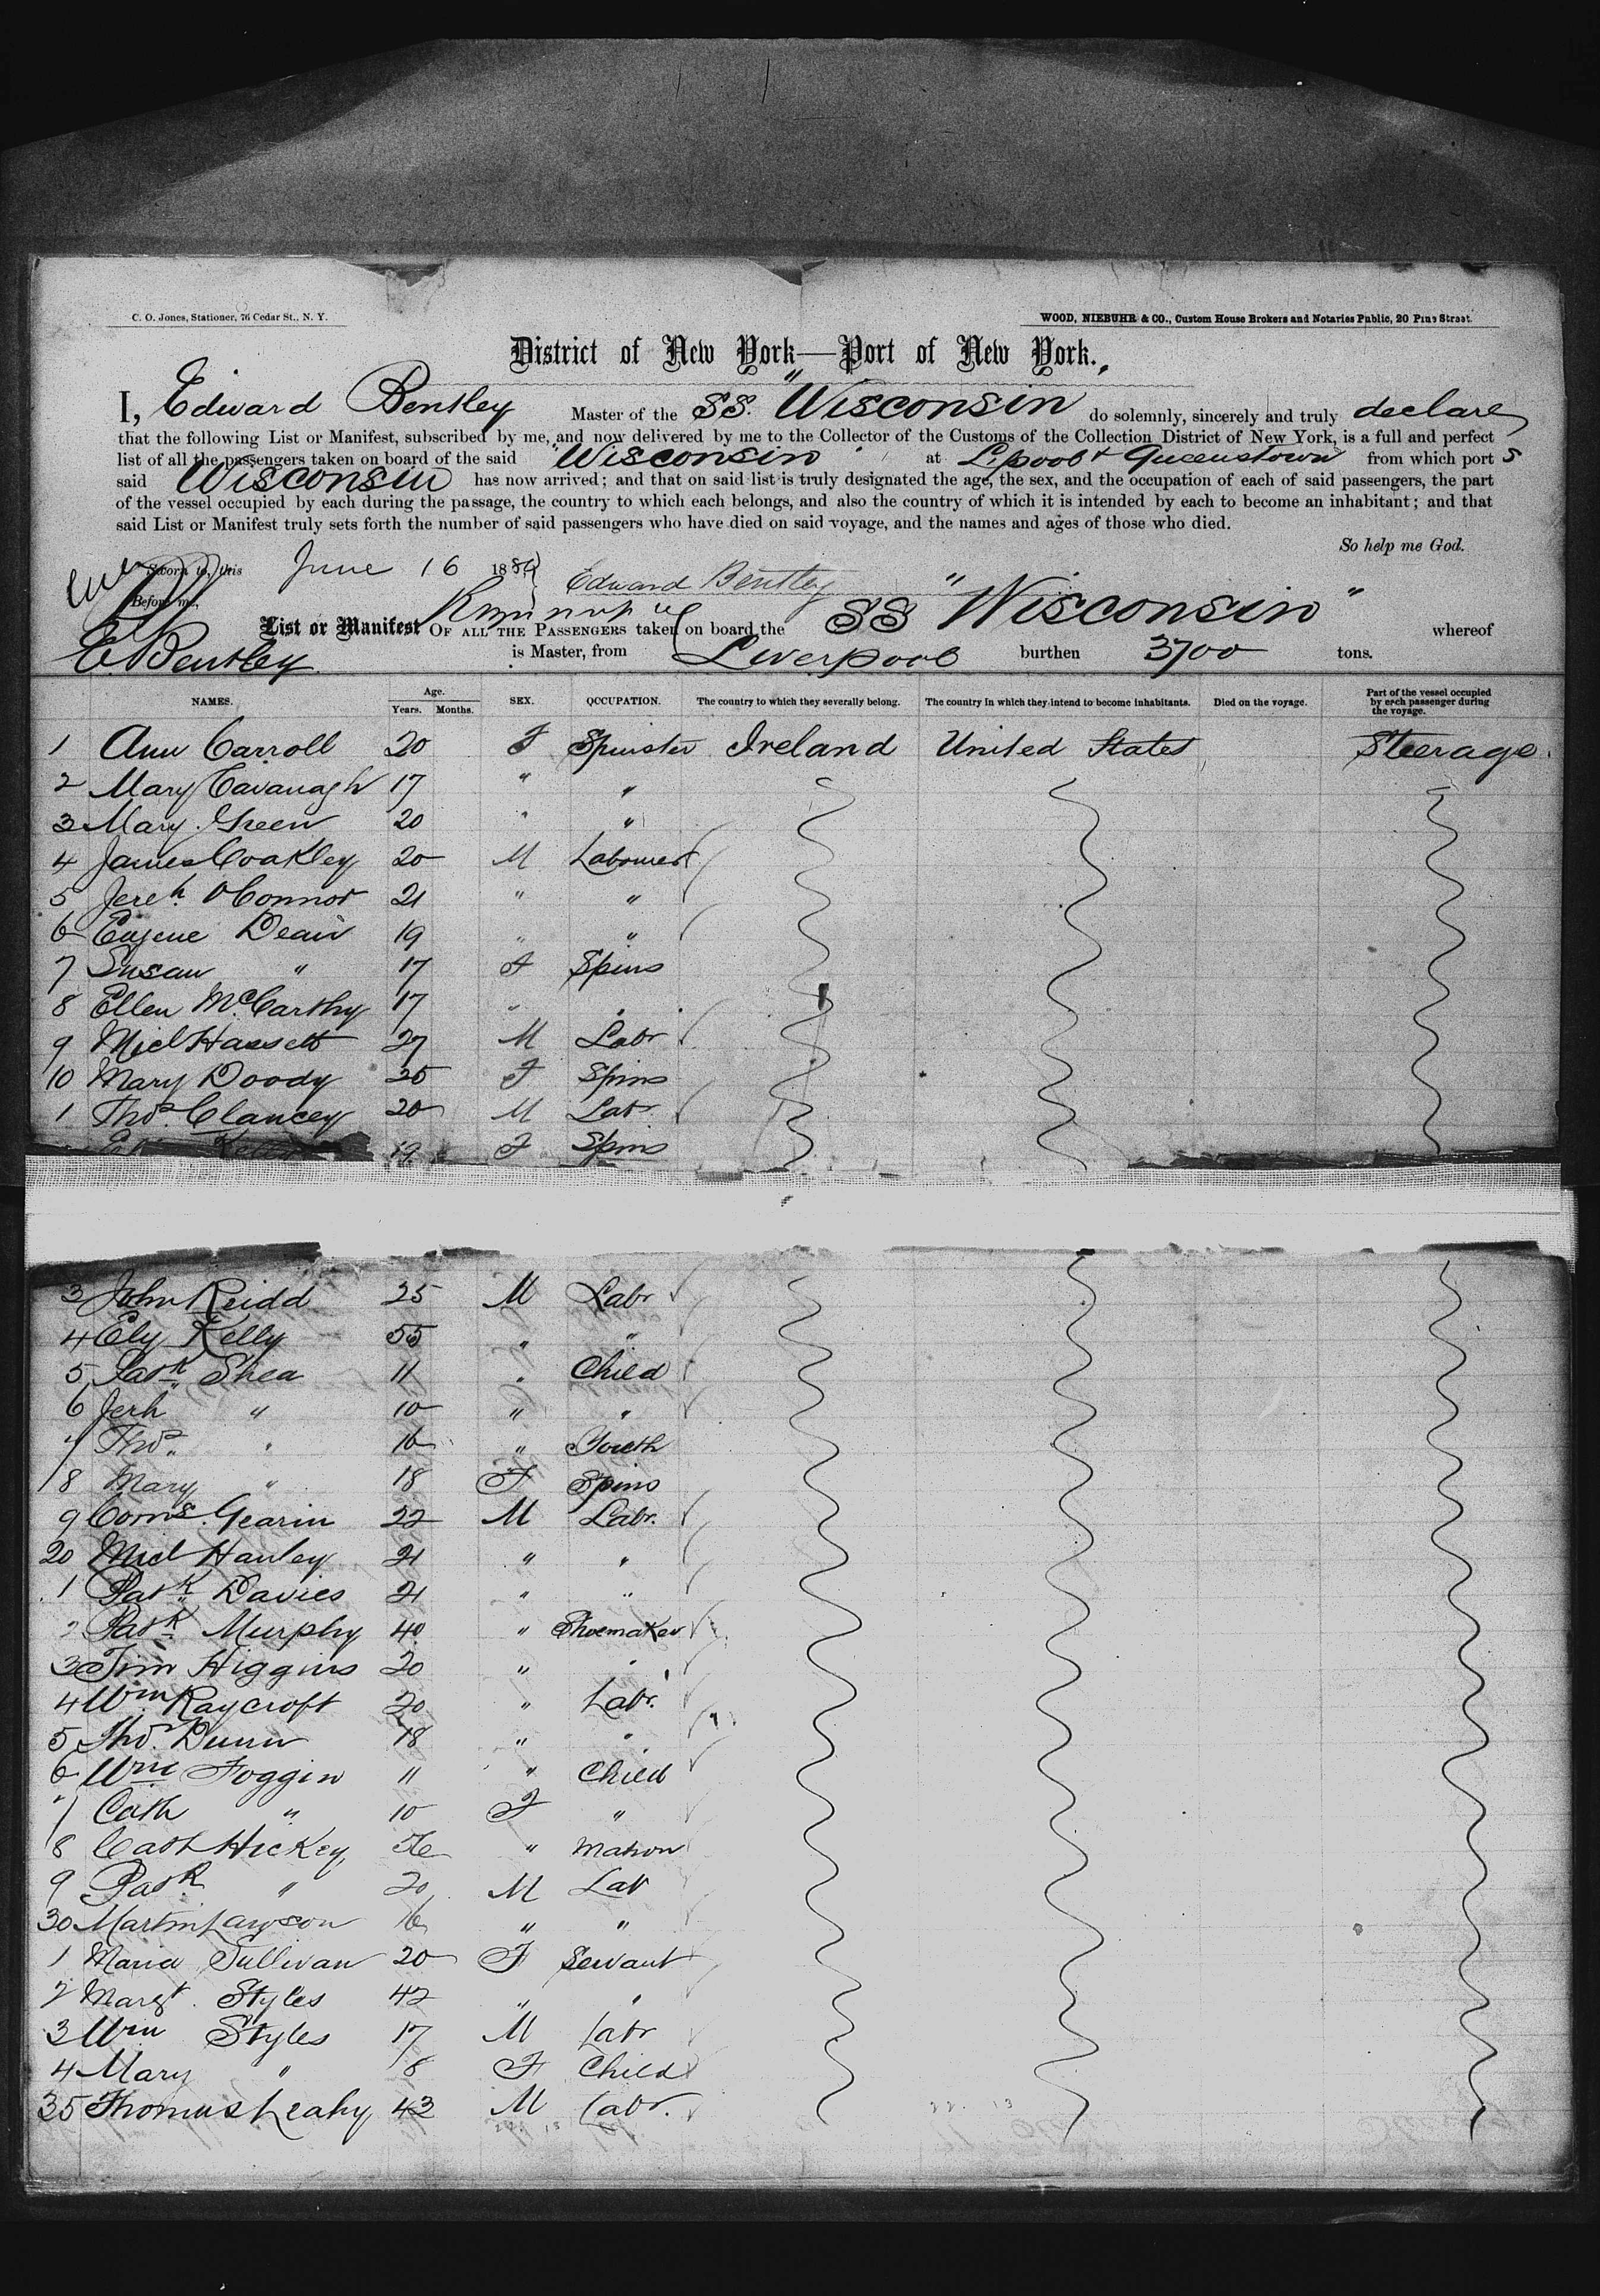 C. O. Jones, Stationer, 76 Cedar St., N. Y.
WOOD, NIEBUHR & CO., Custom House Brokers and Notaries Public, 20 Pine Street.
District of New York—Port of New York.
I, Edward Bentley Master of the SS. "Wisconsin do solemnly, sincerely and truly declare
that the following List or Manifest, subscribed by me, and now delivered by me to the Collector of the Customs of the Collection District of New York, is a full and perfect
list of all the passengers taken on board of the said "Wisconsin" at L.pool & Queenstown from which port s
said Wisconsin has now arrived; and that on said list is truly designated the age, the sex, and the occupation of each of said passengers, the part
of the vessel occupied by each during the passage, the country to which each belongs, and also the country of which it is intended by each to become an inhabitant; and that
said List or Manifest truly sets forth the number of said passengers who have died on said voyage, and the names and ages of those who died.
So help me God.
Sworn to, this June 16 188
Edward Bentley
Before me,
List or Manifest OF ALL THE PASSENGERS taken on board the SS "Wisconsin" whereof
E Bentley is Master, from Liverpool burthen 3700 tons.
NAMES. Age. Years. Months. SEX. OCCUPATION. The country to which they severally belong. The country in which they intend to become inhabitants. Died on the voyage. Part of the vessel occupied by each passenger during the voyage.
1 Ann Carroll 20 F Spinster Ireland United States Steerage
2 Mary Cavanagh 17 " "
3 Mary Green 20 " "
4 James Coakley 20 M Labourer
5 Jereh. O'Connor 21 " "
6 Eugene Dean 19 " "
7 Susan " 17 F Spins
8 Ellen McCarthy 17 " "
9 Micl Hassett 27 M Labr
10 Mary Doody 25 F Spins
1 Thos. Clancey 20 M Labr
Kelly 19 F Spins
3 John Reidd 25 M Labr
4 Ely Kelly 55 " "
5 Patk Shea 11 " Child
6 Jerh " 10 " "
7 Thos. " 16 " Youth
18 Mary " 18 F Spins
9 Corns. Gearin 22 M Labr.
20 Micl Hanley 21 " "
1 Patk Davies 21 " "
2 Patk Murphy 40 " Shoemaker
3 Tim Higgins 20 " "
4 Wm Raycroft 20 " Labr.
5 Thos. Dunn 18 " "
6 Wm Foggin 11 " Child
7 Cath " 10 F "
8 Cath Hickey 56 " Matron
9 Patk " 20 M Lab
30 Martin Lawson 16 " "
1 Maria Sullivan 20 F Servant
2 Margt. Styles 42 " "
3 Wm Styles 17 M Labr
4 Mary " 8 F Child
35 Thomas Leahy 43 M Labr.